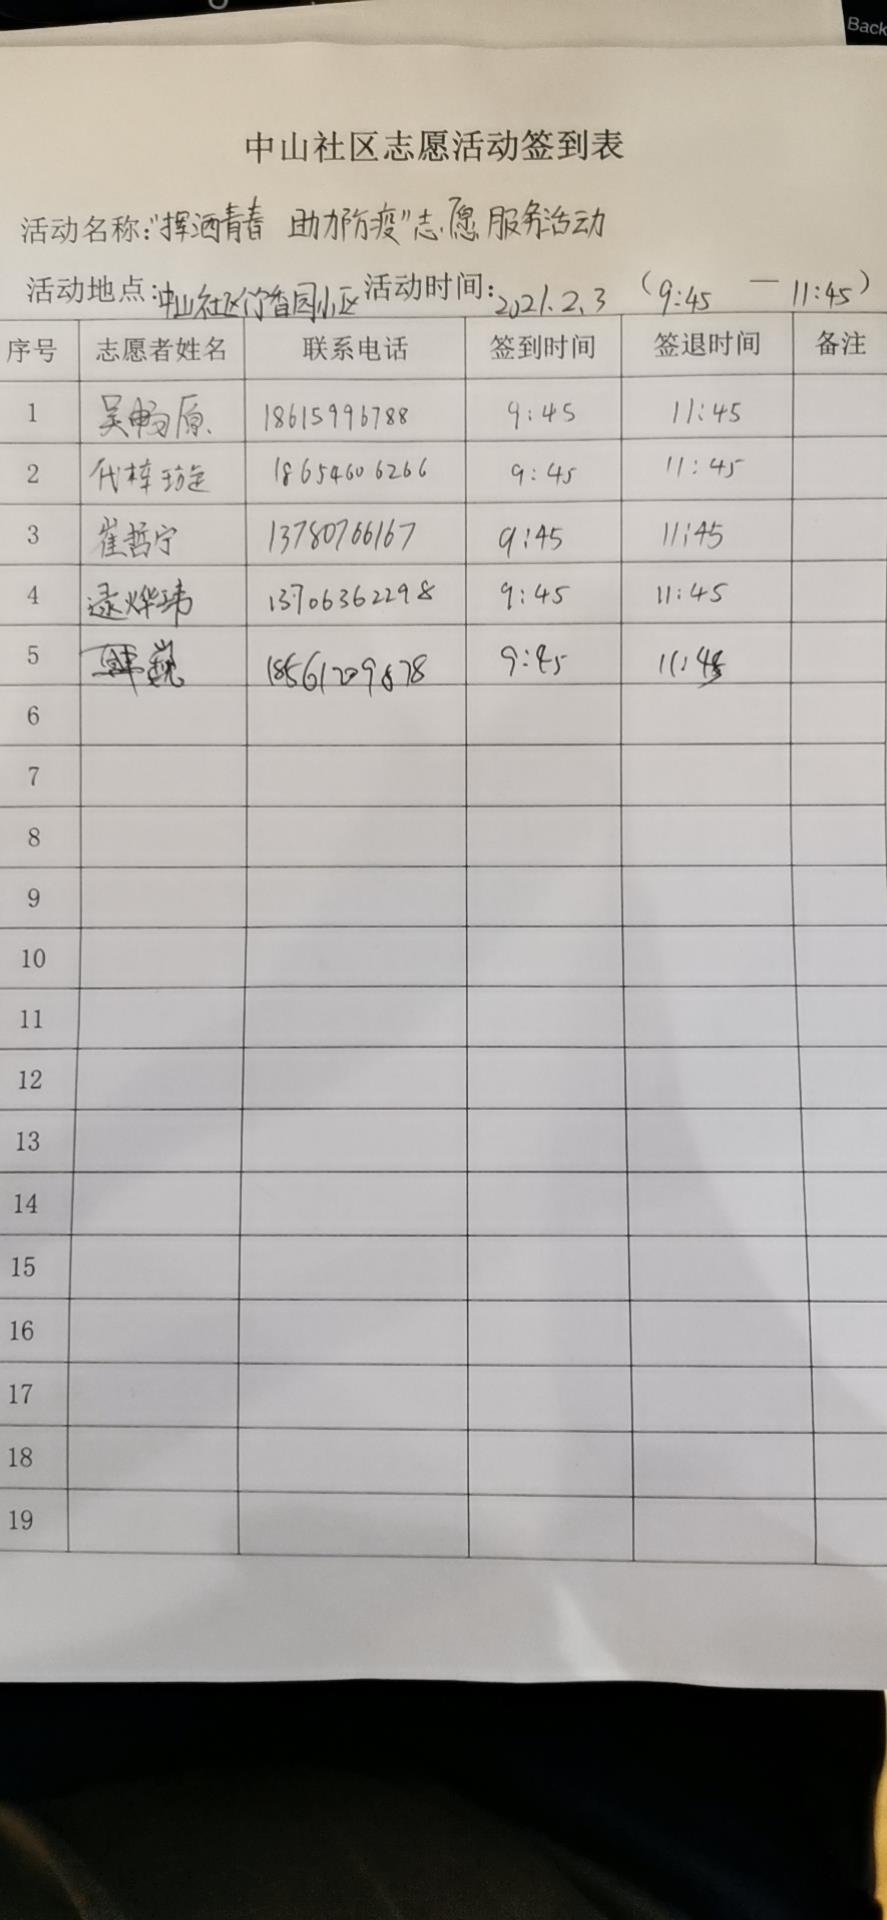 Back
中山社区志愿活动签到表
活动名称:"挥洒青春 助力防疫"志愿服务活动
活动地点:中山社区竹香园小区 活动时间:2021.2.3 (9:45 — 11:45)
序号 志愿者姓名 联系电话 签到时间 签退时间 备注
1 吴畅原 18615996788 9:45 11:45
2 代梓璇 18654606266 9:45 11:45
3 崔哲宁 13780766167 9:45 11:45
4 逯烨玮 13706362298 9:45 11:45
5 9:45 11:45
6
7
8
9
10
11
12
13
14
15
16
17
18
19